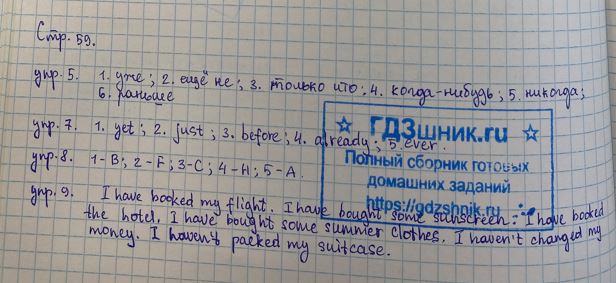 Стр. 59.
упр. 5. 1. уже; 2. ещё не; 3. только что; 4. когда-нибудь; 5. никогда;
6. раньше
упр. 7. 1. yet; 2. just; 3. before; 4. already; 5. ever.
упр. 8. 1-B; 2-F; 3-C; 4-H; 5-A.
упр. 9. I have booked my flight. I have bought some sunscreen. I have booked
the hotel. I have bought some summer clothes. I haven't changed my
money. I haven't packed my suitcase.
ГДЗшник.ru
Полный сборник готовых
домашних заданий
https://gdzshnik.ru